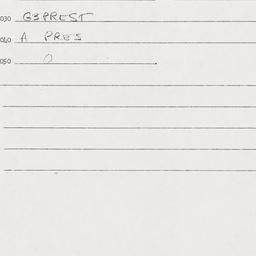 030 G3PREST
040 A PRES
050 O